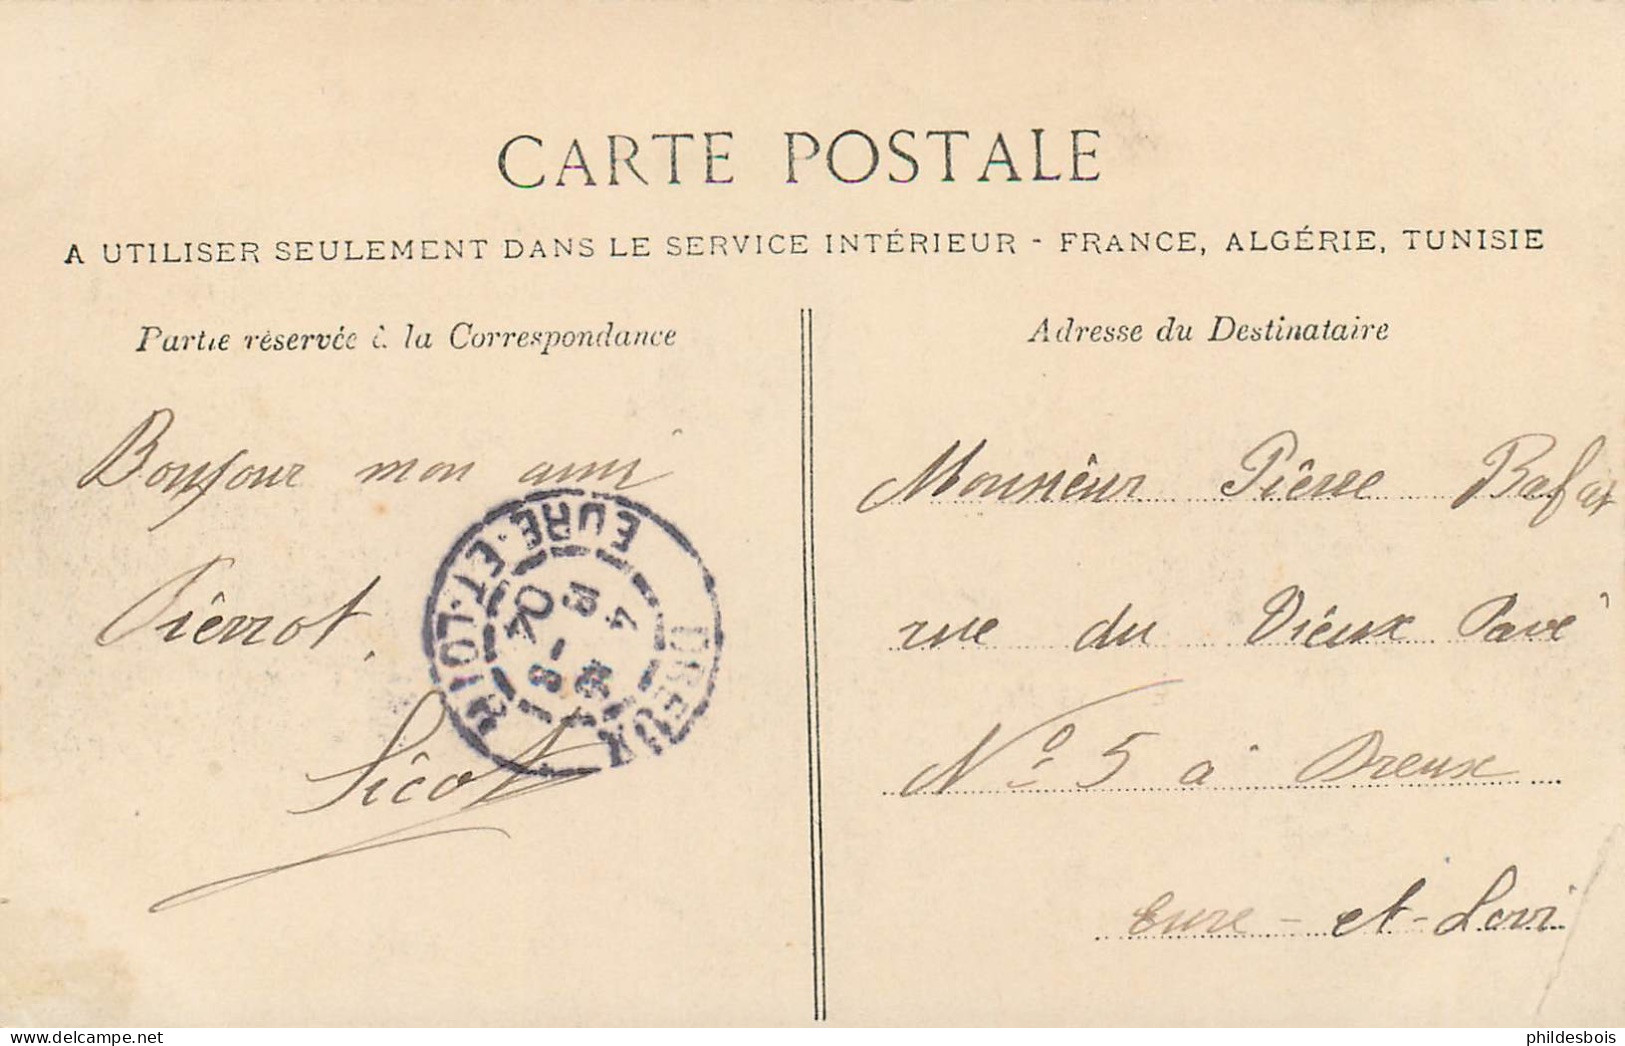 CARTE POSTALE
A UTILISER SEULEMENT DANS LE SERVICE INTÉRIEUR - FRANCE, ALGÉRIE, TUNISIE
Partie réservée à la Correspondance
Bonjour mon ami
Piêrrot.
Sicot
DREUX
EURE-ET-LOIR
4
8
04
Adresse du Destinataire
Monsiêur Piêrre
rue du Viéux Pavé
Nº 5 à Dreux
Eure-et-Loir
delcampe.net
phildesbois